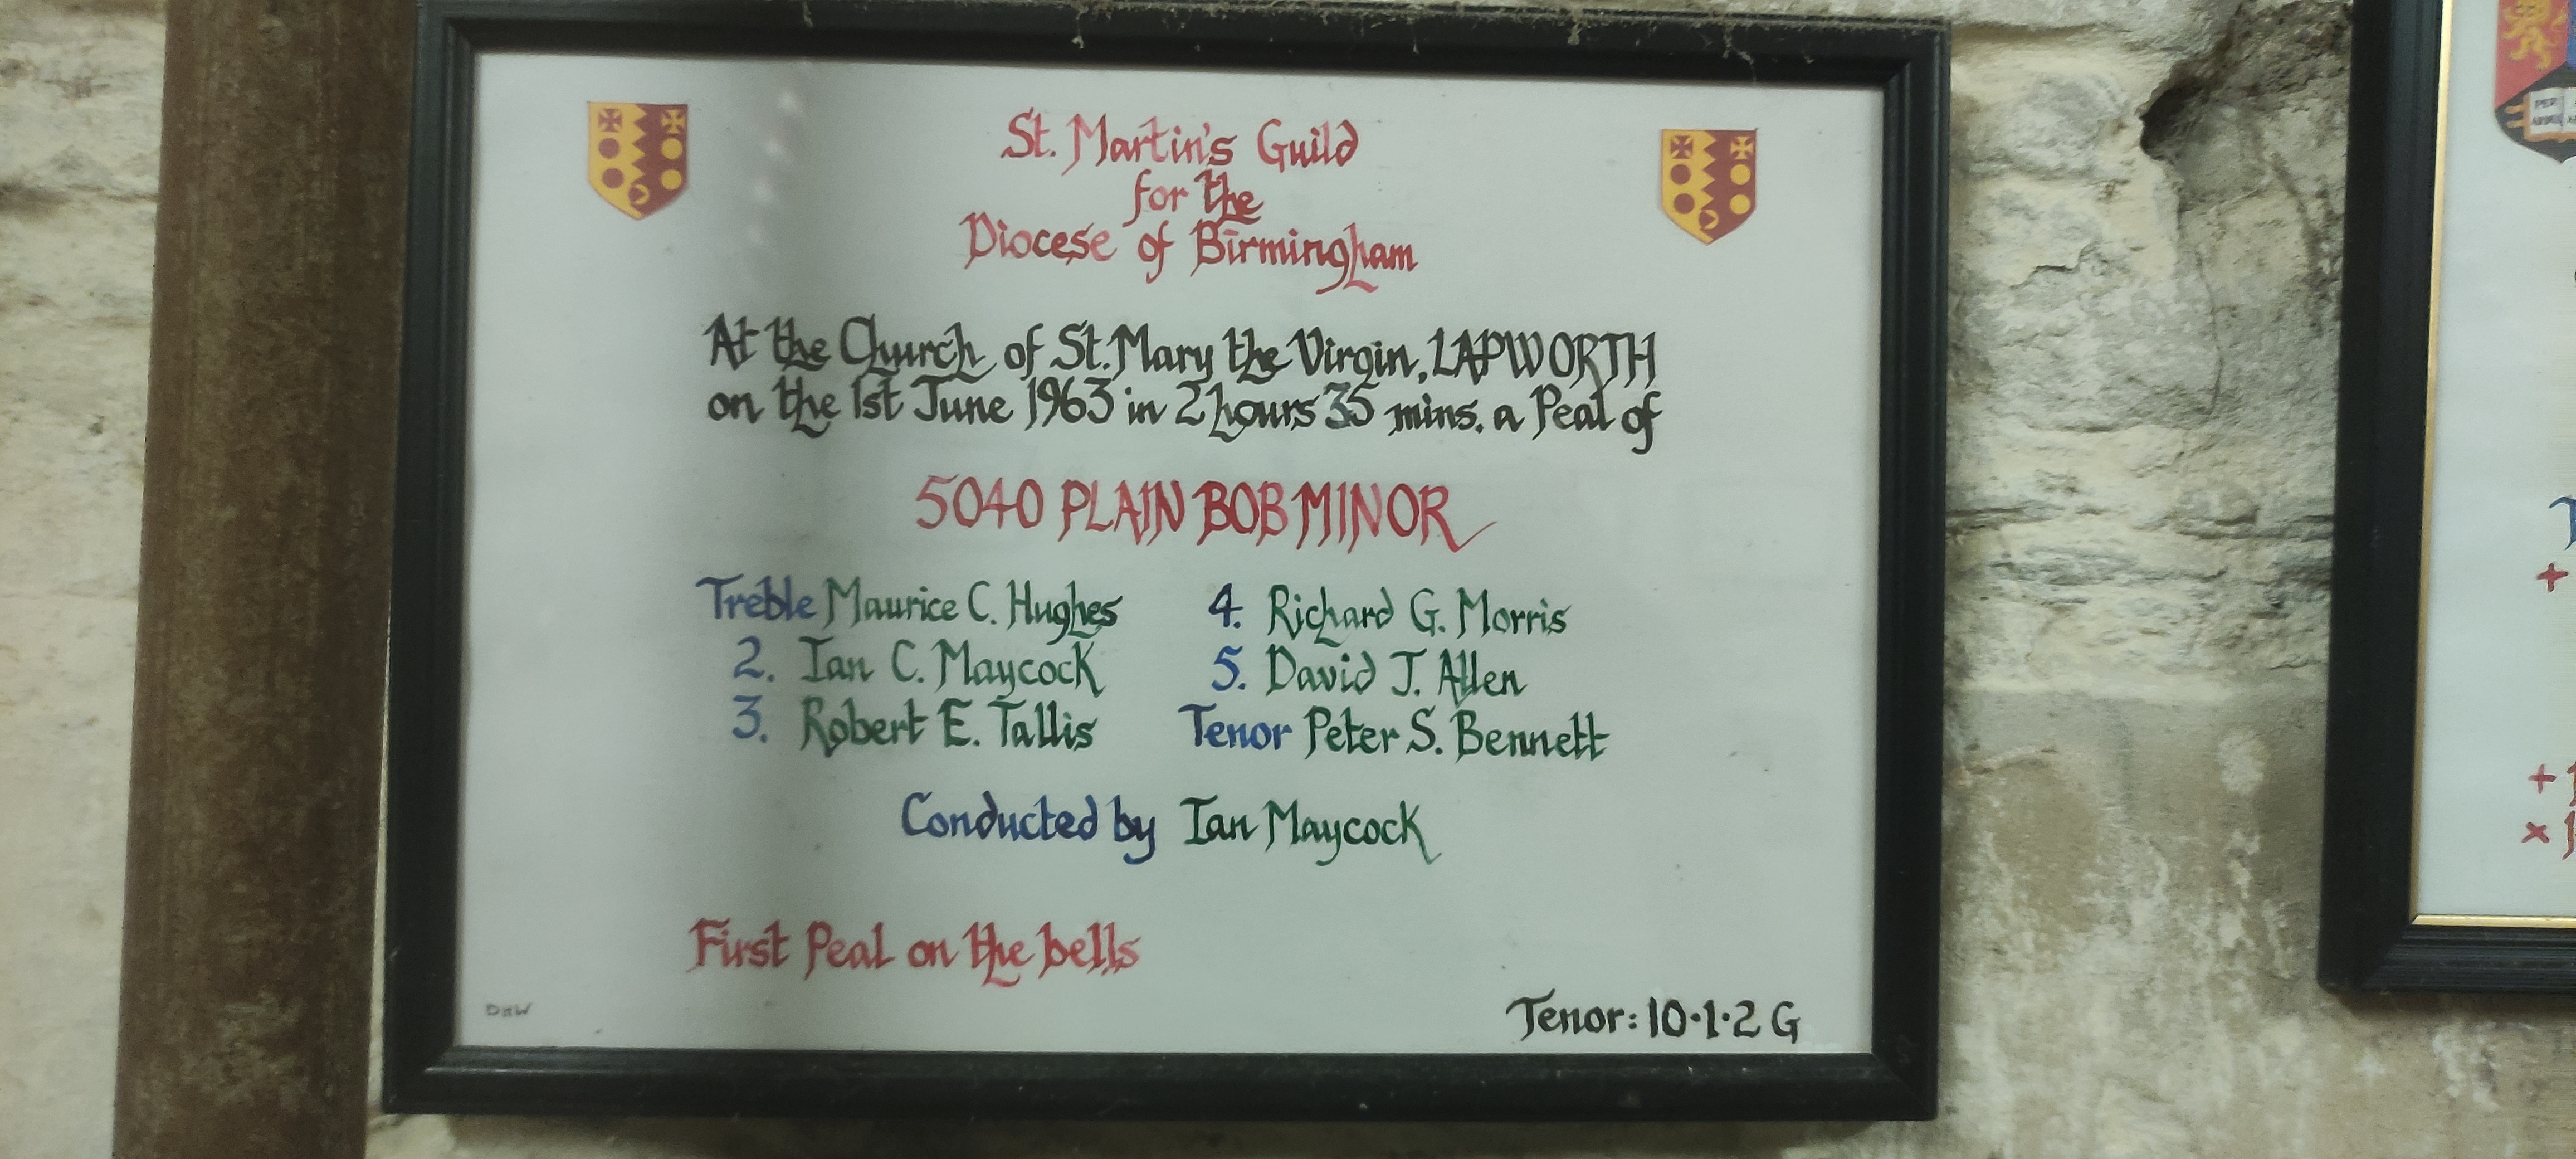 St. Martin's Guild
for the
Diocese of Birmingham
At the Church of St. Mary the Virgin, LAPWORTH
on the 1st June 1963 in 2 hours 35 mins. a Peal of
5040 PLAIN BOB MINOR
Treble Maurice C. Hughes
2. Ian C. Maycock
3. Robert E. Tallis
4. Richard G. Morris
5. David J. Allen
Tenor Peter S. Bennett
Conducted by Ian Maycock
First Peal on the bells
DHW
Tenor: 10·1·2 G
PER